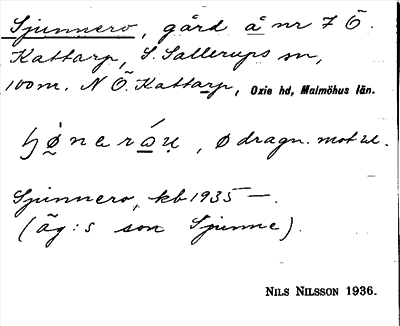 Sjunnero, gård å nr 7 Ö.
Kattarp, S. Sallerups sn,
100 m. N Ö. Kattarp, Oxie hd, Malmöhus län.
, ø dragn. mot
Sjunnero, kb 1935 —.
(äg:s son Sjunne).
NILS NILSSON 1936.